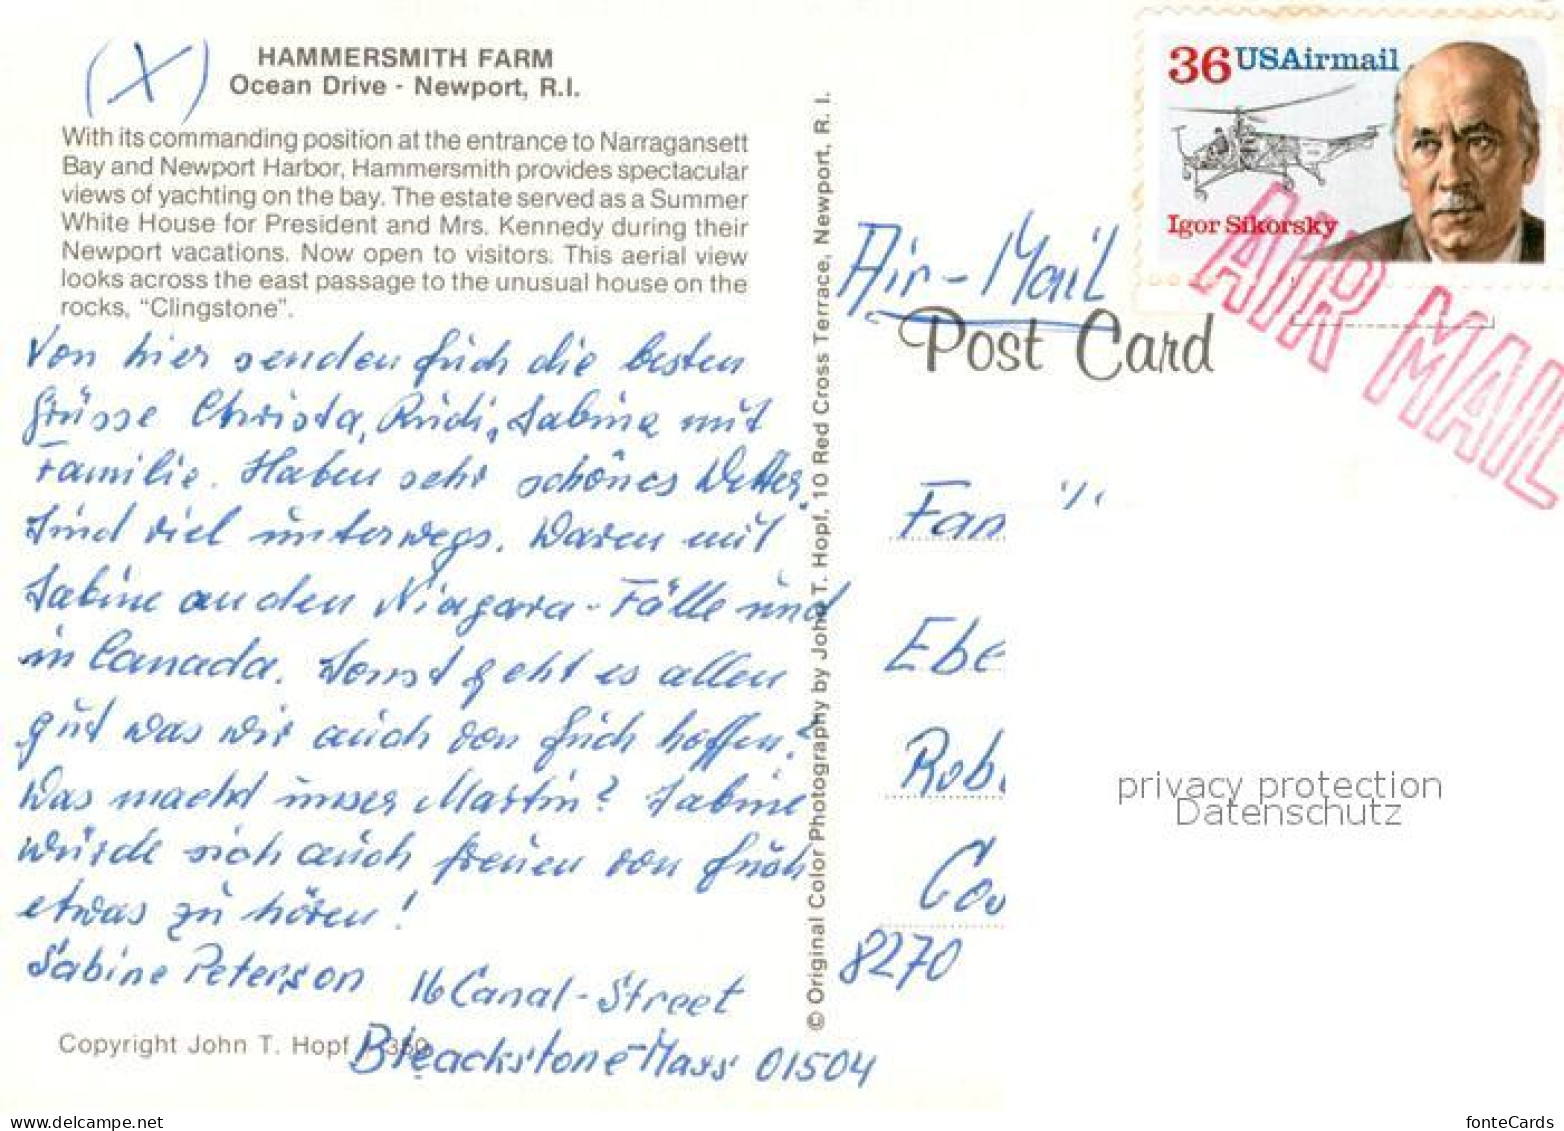 (X)
HAMMERSMITH FARM
Ocean Drive - Newport, R.I.
With its commanding position at the entrance to Narragansett
Bay and Newport Harbor, Hammersmith provides spectacular
views of yachting on the bay. The estate served as a Summer
White House for President and Mrs. Kennedy during their
Newport vacations. Now open to visitors. This aerial view
looks across the east passage to the unusual house on the
rocks, "Clingstone".
Von hier senden Euch die besten
Grüsse Christa, Rudi, Sabine mit
Familie. Haben sehr schönes Wetter.
Sind viel unterwegs. Waren mit
Sabine an den Niagara-Fälle und
in Canada. Sonst geht es allen
gut was wir auch von Euch hoffen.
Was macht unser Martin? Sabine
würde sich auch freuen von Euch
etwas zu hören!
Sabine Peterson 16 Canal-Street
Bleackstone-Mass 01504
Copyright John T. Hopf
© Original Color Photography by John T. Hopf, 10 Red Cross Terrace, Newport, R. I.
36 USAirmail
Igor Sikorsky
AIR MAIL
Air-Mail
Post Card
Fam
Ebe
Rob
Co
8270
privacy protection
Datenschutz
www.delcampe.net
fonteCards